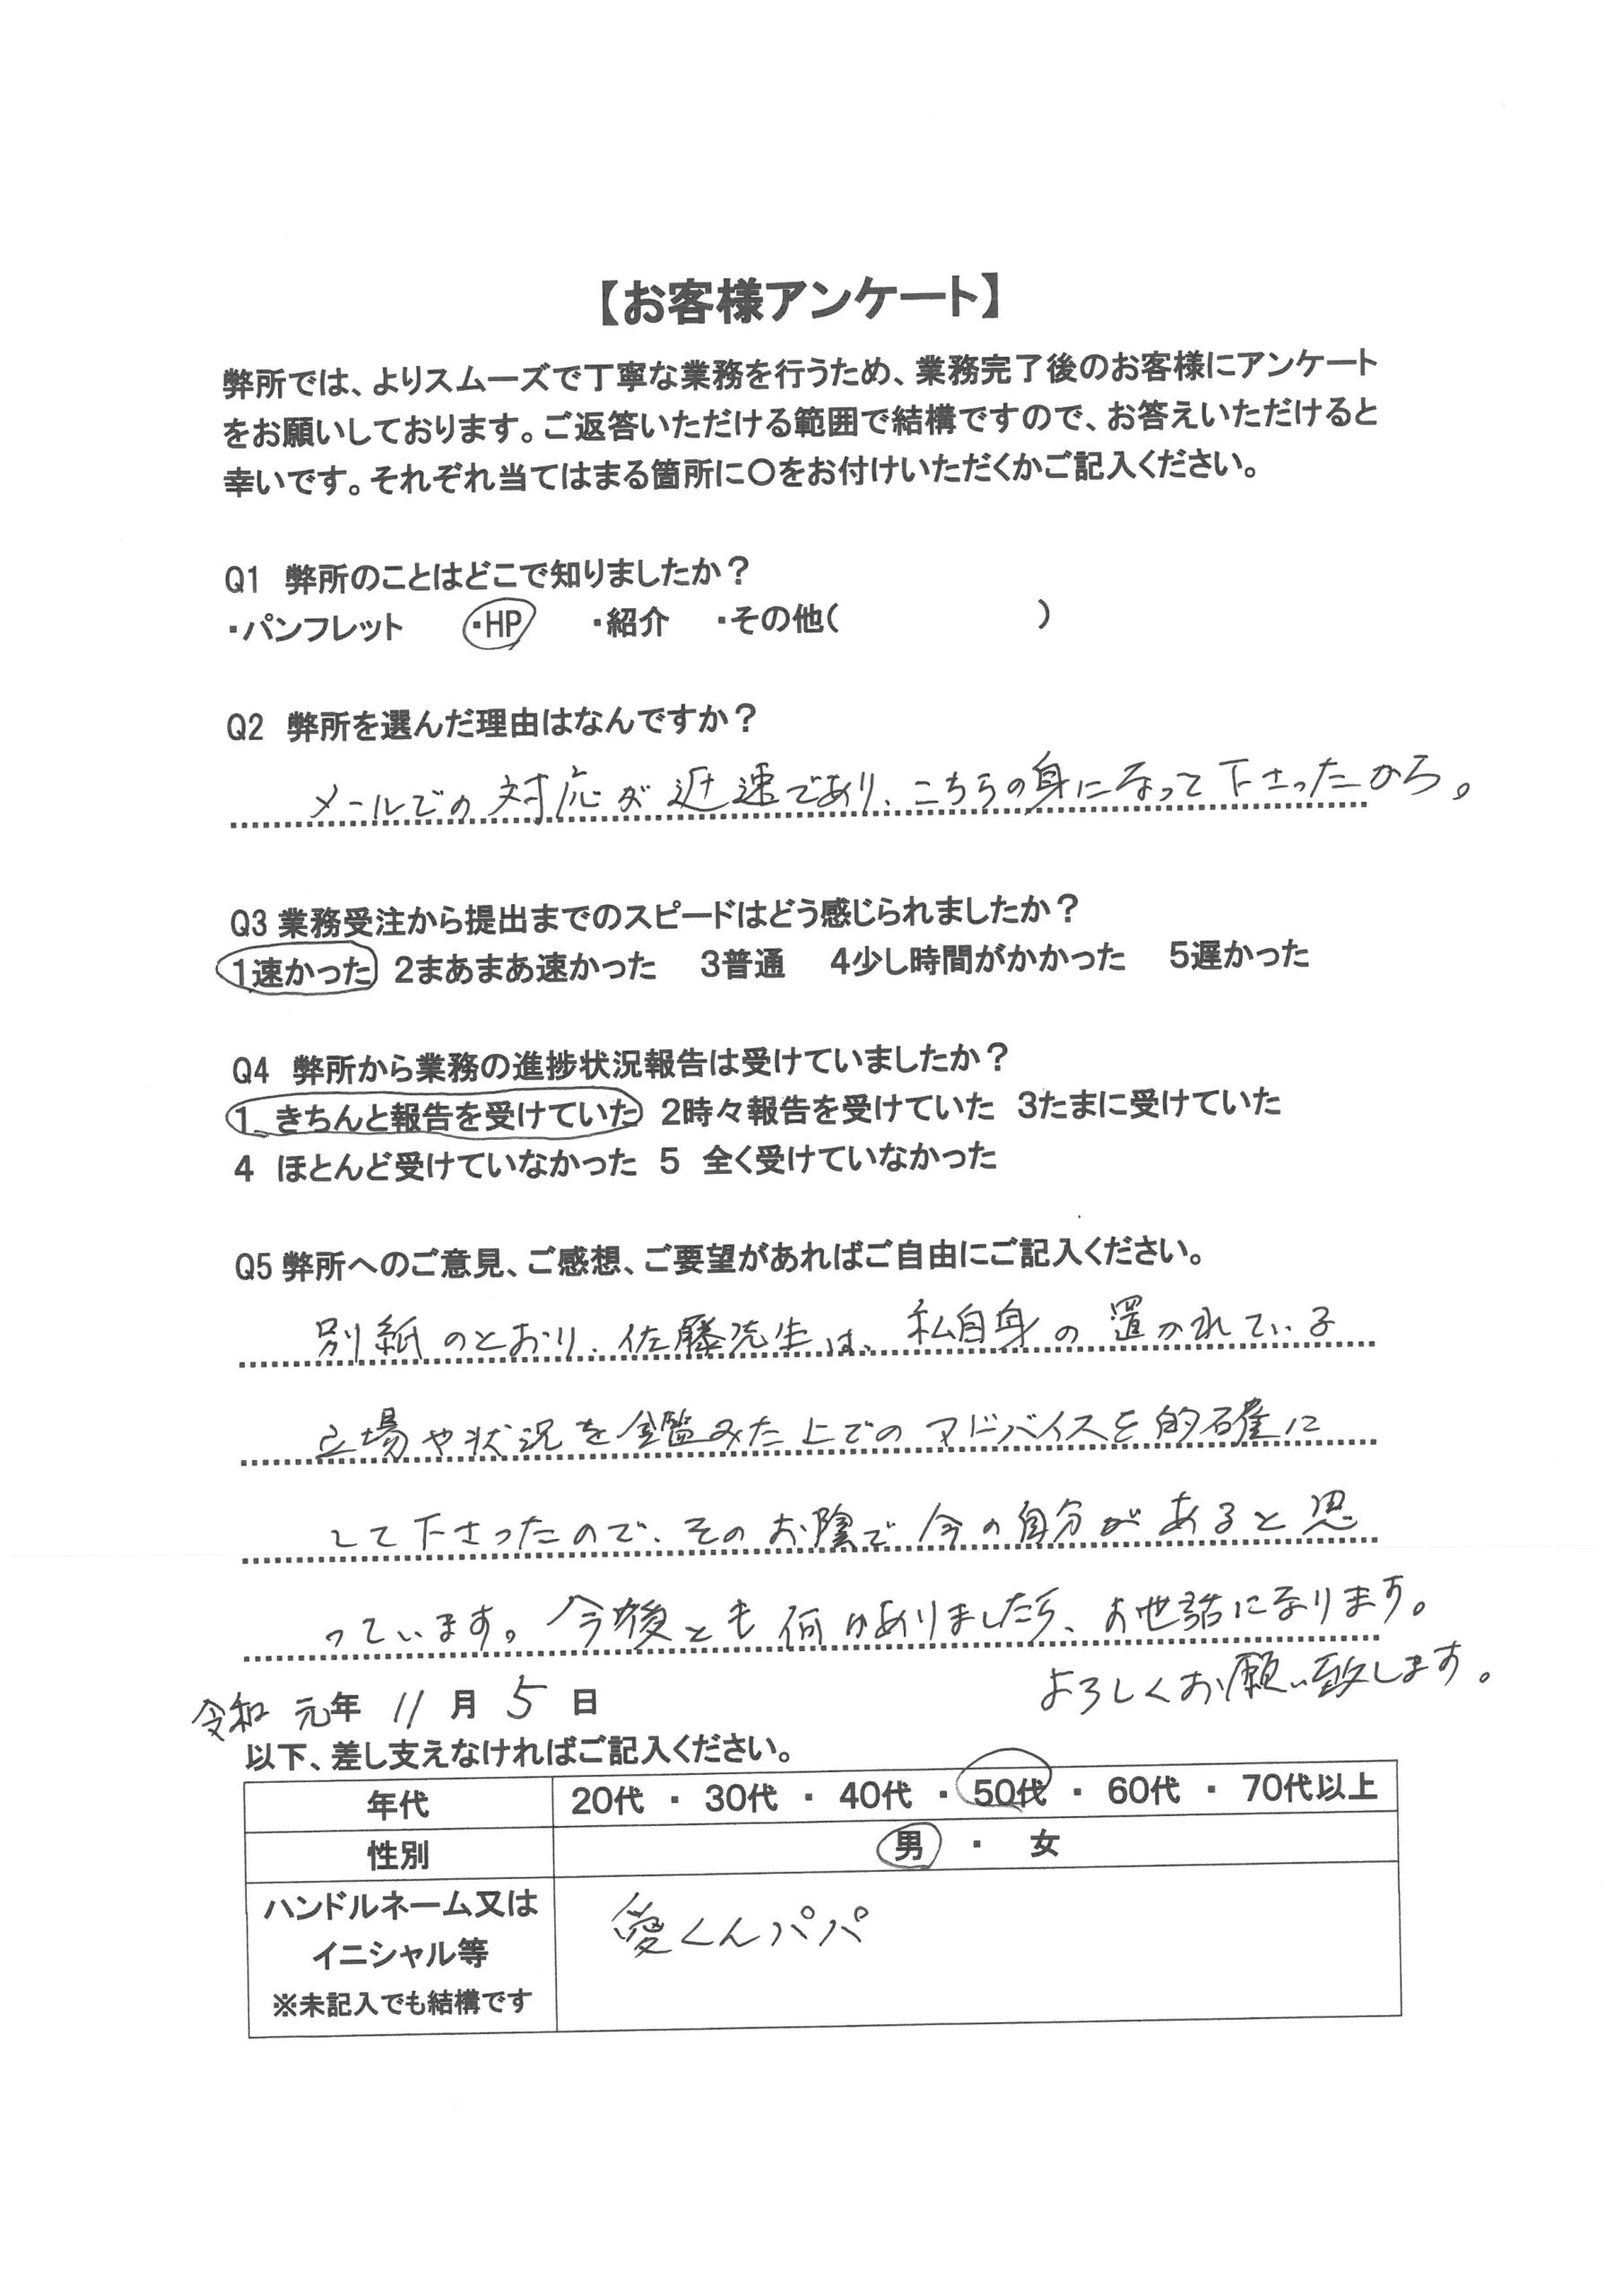 【お客様アンケート】
弊所では、よりスムーズで丁寧な業務を行うため、業務完了後のお客様にアンケート
をお願いしております。ご返答いただける範囲で結構ですので、お答えいただけると
幸いです。それぞれ当てはまる箇所に〇をお付けいただくかご記入ください。
Q1 弊所のことはどこで知りましたか？
・パンフレット ・HP ・紹介 ・その他( )
Q2 弊所を選んだ理由はなんですか？
メールでの対応が迅速であり、こちらの身になって下さったから。
Q3 業務受注から提出までのスピードはどう感じられましたか？
1速かった 2まあまあ速かった 3普通 4少し時間がかかった 5遅かった
Q4 弊所から業務の進捗状況報告は受けていましたか？
1. きちんと報告を受けていた 2時々報告を受けていた 3たまに受けていた
4 ほとんど受けていなかった 5 全く受けていなかった
Q5 弊所へのご意見、ご感想、ご要望があればご自由にご記入ください。
別紙のとおり、佐藤先生は、私自身の置かれている
立場や状況を鑑みた上でのアドバイスを的確に
して下さったので、そのお陰で今の自分があると思
っています。今後とも何かありましたら、お世話になります。
よろしくお願い致します。
令和元年 11月 5日
以下、差し支えなければご記入ください。
年代 20代 ・ 30代 ・ 40代 ・ 50代 ・ 60代 ・ 70代以上
性別 男 ・ 女
ハンドルネーム又は
イニシャル等
※未記入でも結構です
愛くんパパ